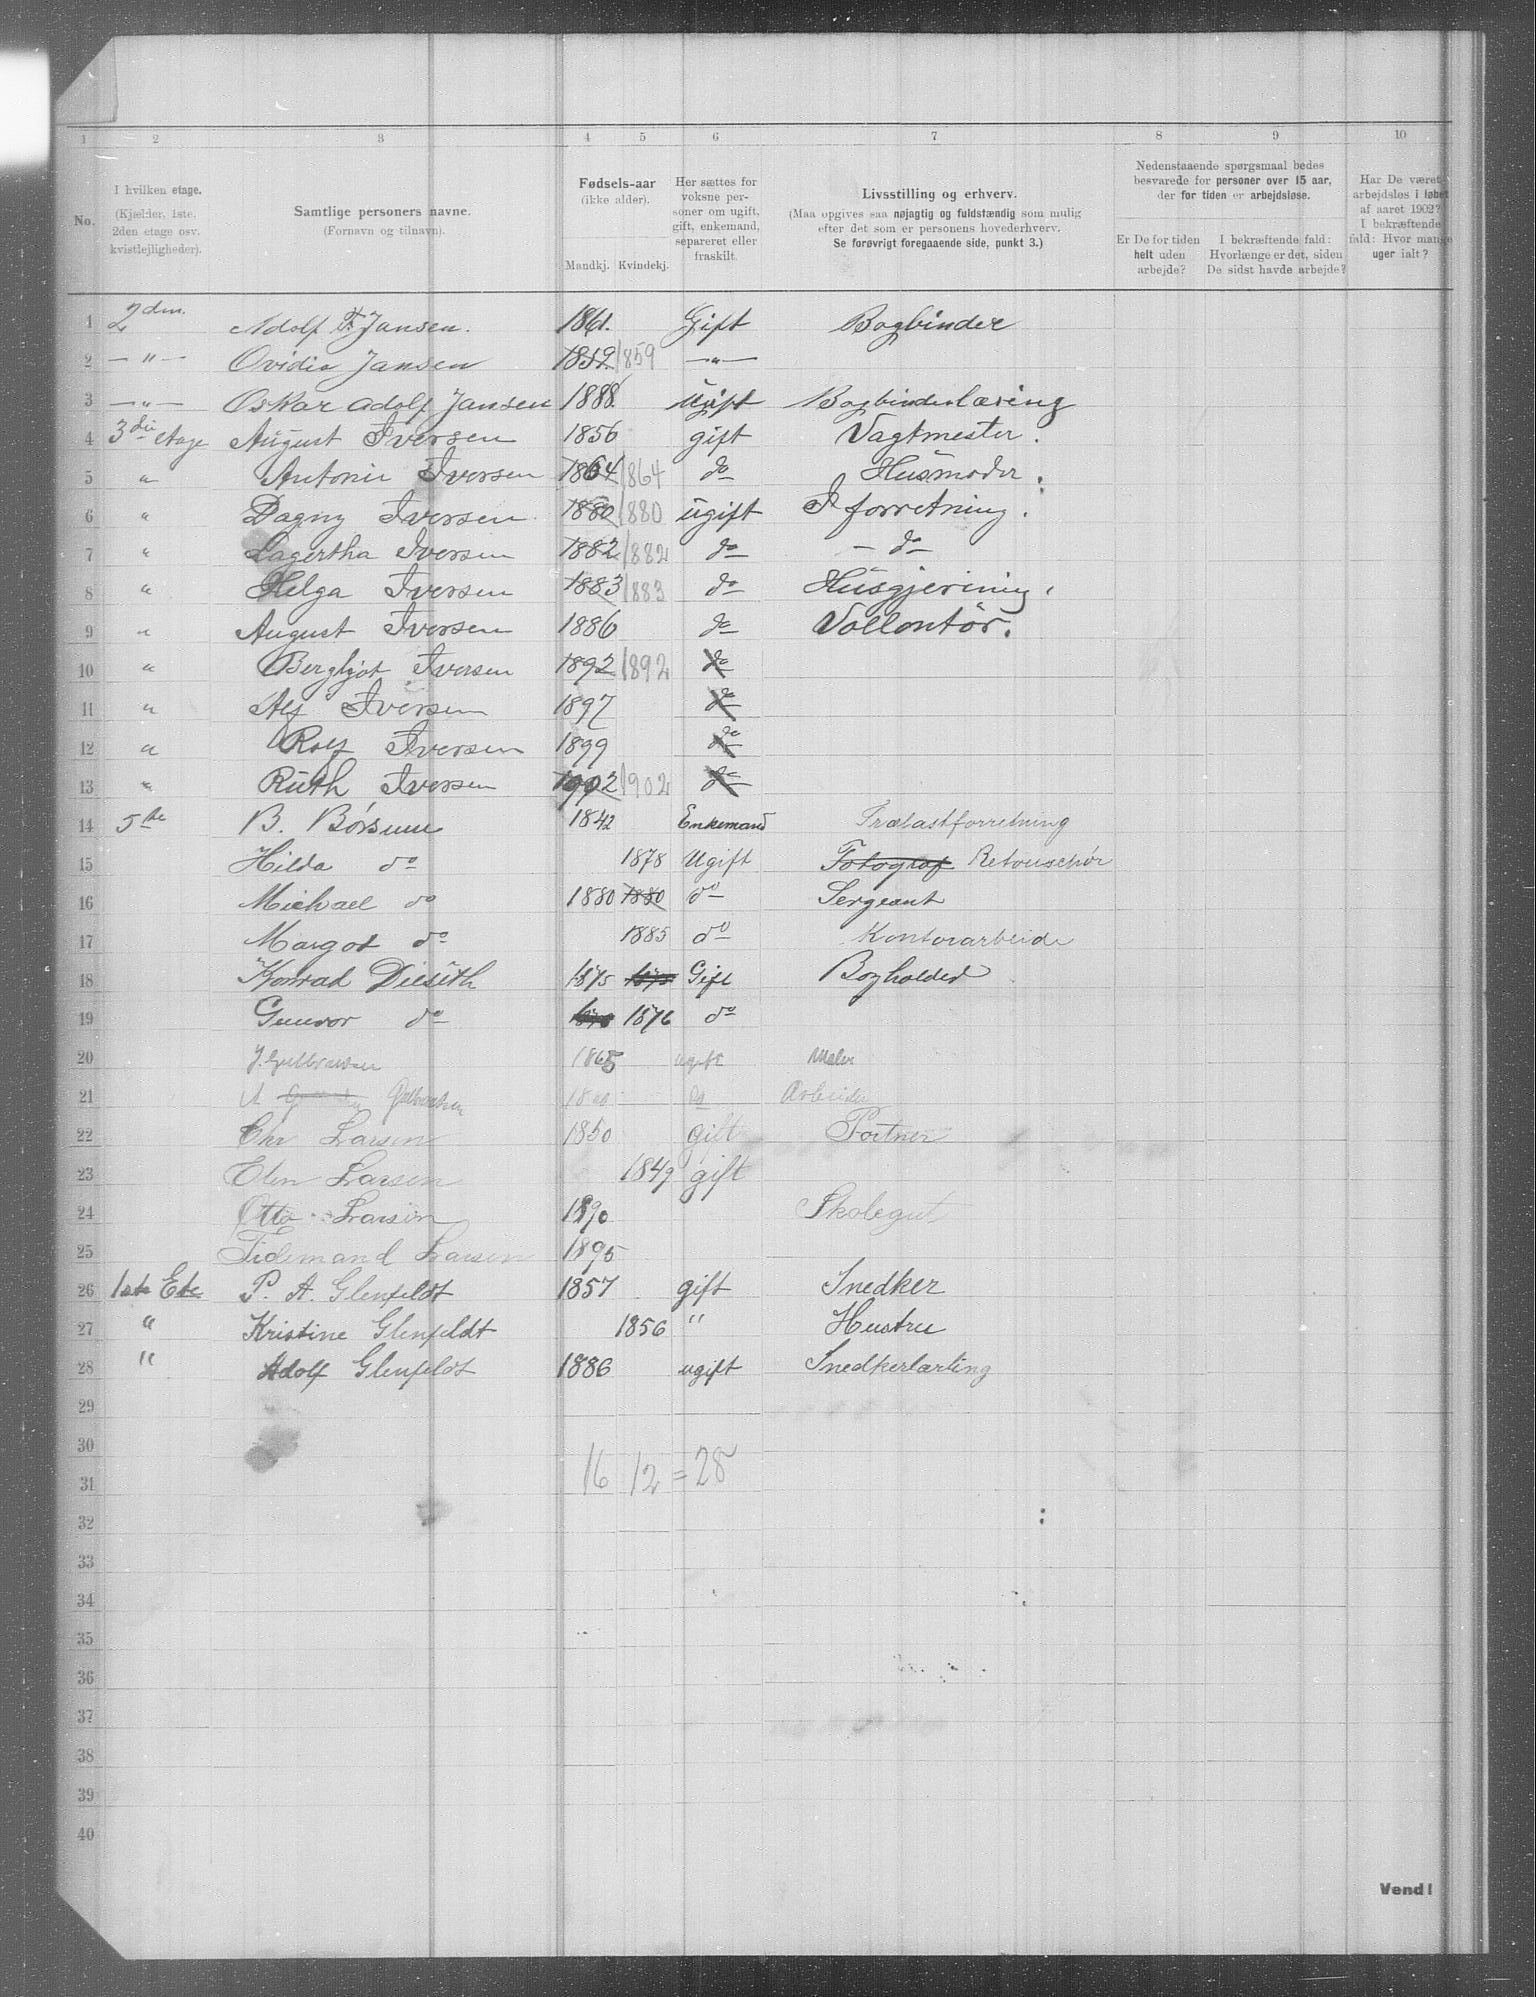 1 2 3 4 5 6 7 8 9 10
No. I hvilken etage. (Kjælder, 1ste. 2den etage osv. kvistlejligheder).
Samtlige personers navne. (Fornavn og tilnavn).
Fødsels-aar (ikke alder). Mandkj. Kvindekj.
Her sættes for voksne personer om ugift, gift, enkemand, separeret eller fraskilt.
Livsstilling og erhverv. (Maa opgives saa nøjagtig og fuldstændig som mulig efter det som er personens hovederhverv. Se forøvrigt foregaaende side, punkt 3.)
Nedenstaaende spørgsmaal bedes besvarede for personer over 15 aar, der for tiden er arbejdsløse.
Er De for tiden helt uden arbejde?
I bekræftende fald: Hvorlænge er det, siden De sidst havde arbejde?
Har De været arbejdsløs i løbet af aaret 1902? I bekræftende fald: Hvor mange uger ialt?
1 2den. Adolf F. Jansen. 1861. Gift Bogbinder
2 — " — Ovidia Jansen 1859 1859 — " —
3 — " — Oskar Adolf Jansen 1888. Ugift Bogbinderlæring
4 3die etage August Iversen 1856 gift Vagtmester.
5 " Antonie Iversen 1864 1864 do Husmoder.
6 " Dagny Iversen 1880 1880 ugift I forretning.
7 " Lagertha Iversen 1882 1882 do — do
8 " Helga Iversen 1883 1883 do Husgjerining.
9 " August Iversen 1886 do Vollontör.
10 " Bergljot Iversen 1892 1892 do
11 " Alf Iversen 1897 do
12 " Rolf Iversen 1899 do
13 " Ruth Iversen 1902 1902 do
14 5te B. Børsum 1842 Enkemand Trælastforretning
15 Hilda do 1878 Ugift Fotograf Retouschör
16 Michael do 1880 1880 do Sergeant
17 Margot do 1885 do Kontorarbeide
18 Konrad Diesith 1875 1875 Gift Bogholder
19 Gunvor do 1876 do
20 J. Gulbransen 1865 ugift Maler
21 A Gulbransen do Arbeider
22 Chr Larsen 1850 gift Portner
23 Elen Larsen 1849 gift
24 Otto Larsen 1890 Skolegut
25 Tidemand Larsen 1895
26 1ste Ete P. A. Glenfeldt 1857 gift Snedker
27 " Kristine Glenfeldt 1856 " Hustru
28 " Adolf Glenfeldt 1886 ugift Snedkerlærling
29
30
31 16 12 = 28
32
33
34
35
36
37
38
39
40
Vend!